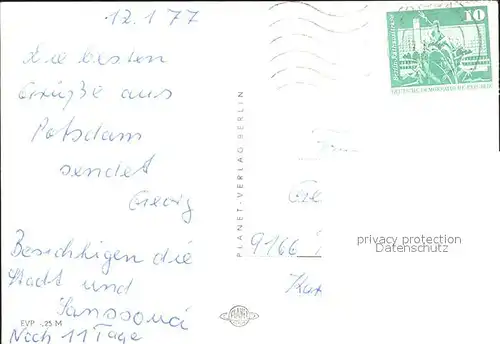 12.1.77
Die besten
Grüße aus
Potsdam
sendet
Georg
Besichtigen die
Stadt und
Sanssouci
Noch 11 Tage
EVP -,25 M
PLANET-VERLAG BERLIN
PLANET
10
DEUTSCHE DEMOKRATISCHE REPUBLIK
9166
privacy protection
Datenschutz